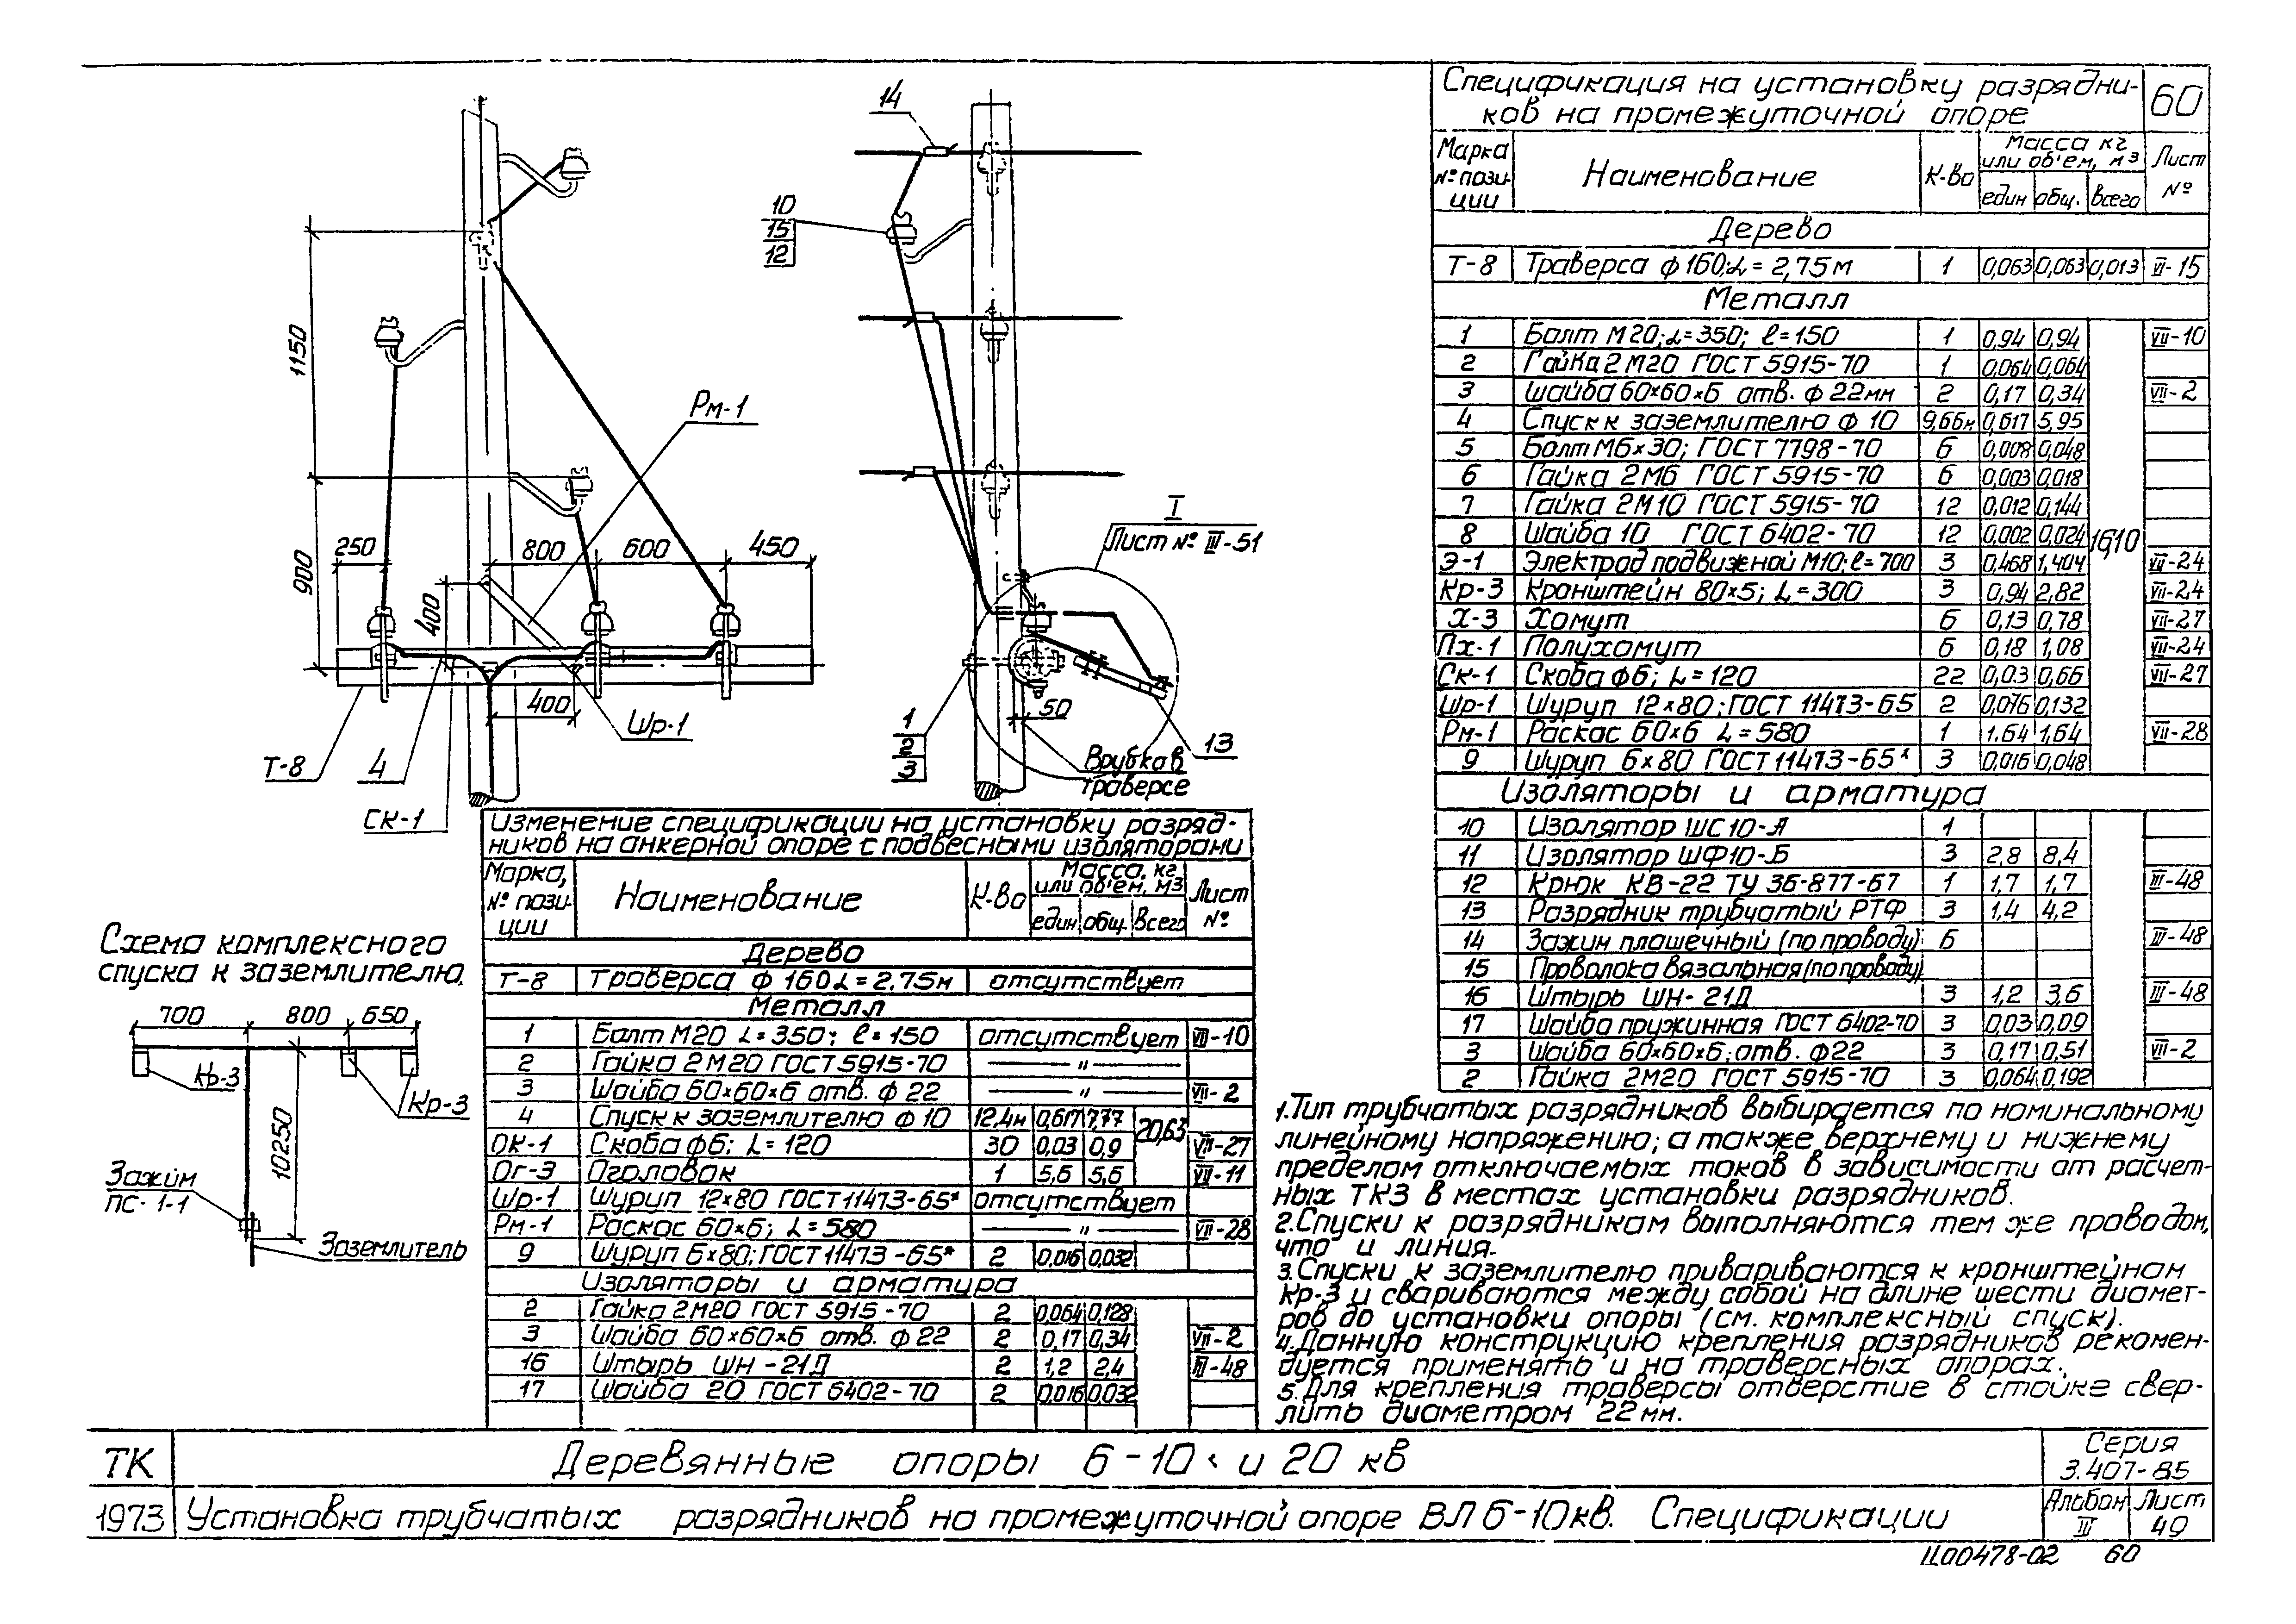 14
10
15
12
1150
900
Рм-1
250
800
600
450
400
400
Шр-1
Т-8
4
СК-1
I
Лист № III-51
50
1
2
3
13
Врубка в
траверсе
Схема комплексного
спуска к заземлителю.
700 800 650
Кр-3
Кр-3
10250
Зажим
ПС-1-1
Заземлитель
Изменение спецификации на установку разряд-
ников на анкерной опоре с подвесными изоляторами
Марка, № пози-ции Наименование К-во Масса, кг или об'ем, м3 един общ. Всего Лист №
Дерево
Т-8 Траверса ф 160 L=2,75м отсутствует
Металл
1 Болт М20 L=350; ℓ=150 отсутствует VII-10
2 Гайка 2М20 ГОСТ 5915-70 — " —
3 Шайба 60×60×6 отв. ф 22 — " — VII-2
4 Спуск к заземлителю ф 10 12,4м 0,617 7,77 20,63
ОК-1 Скоба ф6; L=120 30 0,03 0,9 VII-27
Ог-3 Оголовок 1 5,6 5,6 VII-11
Шр-1 Шуруп 12×80 ГОСТ 11473-65* отсутствует
Рм-1 Раскос 60×6; L=580 — " — VII-28
9 Шуруп 6×80; ГОСТ 11473-65* 2 0,016 0,032
Изоляторы и арматура
2 Гайка 2М20 ГОСТ 5915-70 2 0,064 0,128
3 Шайба 60×60×6 отв. ф 22 2 0,17 0,34 VII-2
16 Штырь ШН-21Д 2 1,2 2,4 III-48
17 Шайба 20 ГОСТ 6402-70 2 0,016 0,032
Спецификация на установку разрядни-
ков на промежуточной опоре
60
Марка № пози-ции Наименование К-во Масса кг или об'ем, м3 един общ. всего Лист №
Дерево
Т-8 Траверса ф 160; L=2,75м 1 0,063 0,063 0,013 VI-15
Металл
1 Болт М20; L=350; ℓ=150 1 0,94 0,94 VII-10
2 Гайка 2 М20 ГОСТ 5915-70 1 0,064 0,064
3 Шайба 60×60×6 отв. ф 22мм 2 0,17 0,34 VII-2
4 Спуск к заземлителю ф 10 9,66м 0,617 5,95
5 Болт М6×30; ГОСТ 7798-70 6 0,008 0,048
6 Гайка 2М6 ГОСТ 5915-70 6 0,003 0,018
7 Гайка 2М10 ГОСТ 5915-70 12 0,012 0,144
8 Шайба 10 ГОСТ 6402-70 12 0,002 0,024 16,10
Э-1 Электрод подвижной М10; ℓ=700 3 0,468 1,404 VII-24
Кр-3 Кронштейн 80×5; L=300 3 0,94 2,82 VII-24
Х-3 Хомут 6 0,13 0,78 VII-27
Пх-1 Полухомут 6 0,18 1,08 VII-24
Ск-1 Скоба ф6; L=120 22 0,03 0,66 VII-27
Шр-1 Шуруп 12×80; ГОСТ 11473-65 2 0,076 0,132
Рм-1 Раскос 60×6 L=580 1 1.64 1,64 VII-28
9 Шуруп 6×80 ГОСТ 11473-65* 3 0,016 0,048
Изоляторы и арматура
10 Изолятор ШС10-А 1
11 Изолятор ШФ10-Б 3 2,8 8,4
12 Крюк КВ-22 ТУ 36-877-67 1 1,7 1,7 III-48
13 Разрядник трубчатый РТФ 3 1,4 4,2
14 Зажим плашечный (по проводу) 6 III-48
15 Проволока вязальная (по проводу)
16 Штырь ШН-21Д 3 1,2 3,6 III-48
17 Шайба пружинная ГОСТ 6402-70 3 0,03 0,09
3 Шайба 60×60×6; отв. ф22 3 0,17 0,51 VII-2
2 Гайка 2М20 ГОСТ 5915-70 3 0,064 0,192
1. Тип трубчатых разрядников выбирается по номинальному
линейному напряжению; а также верхнему и нижнему
пределам отключаемых токов в зависимости от расчет-
ных ТКЗ в местах установки разрядников.
2. Спуски к разрядникам выполняются тем же проводом,
что и линия.
3. Спуски к заземлителю привариваются к кронштейнам
Кр-3 и свариваются между собой на длине шести диамет-
ров до установки опоры (см. комплексный спуск).
4. Данную конструкцию крепления разрядников рекомен-
дуется применять и на траверсных опорах.
5. Для крепления траверсы отверстие в стойке свер-
лить диаметром 22 мм.
ТК Деревянные опоры 6-10 и 20 кв Серия 3.407-85
1973 Установка трубчатых разрядников на промежуточной опоре ВЛ 6-10кв. Спецификации Альбом III Лист 49
Ц00478-02 60